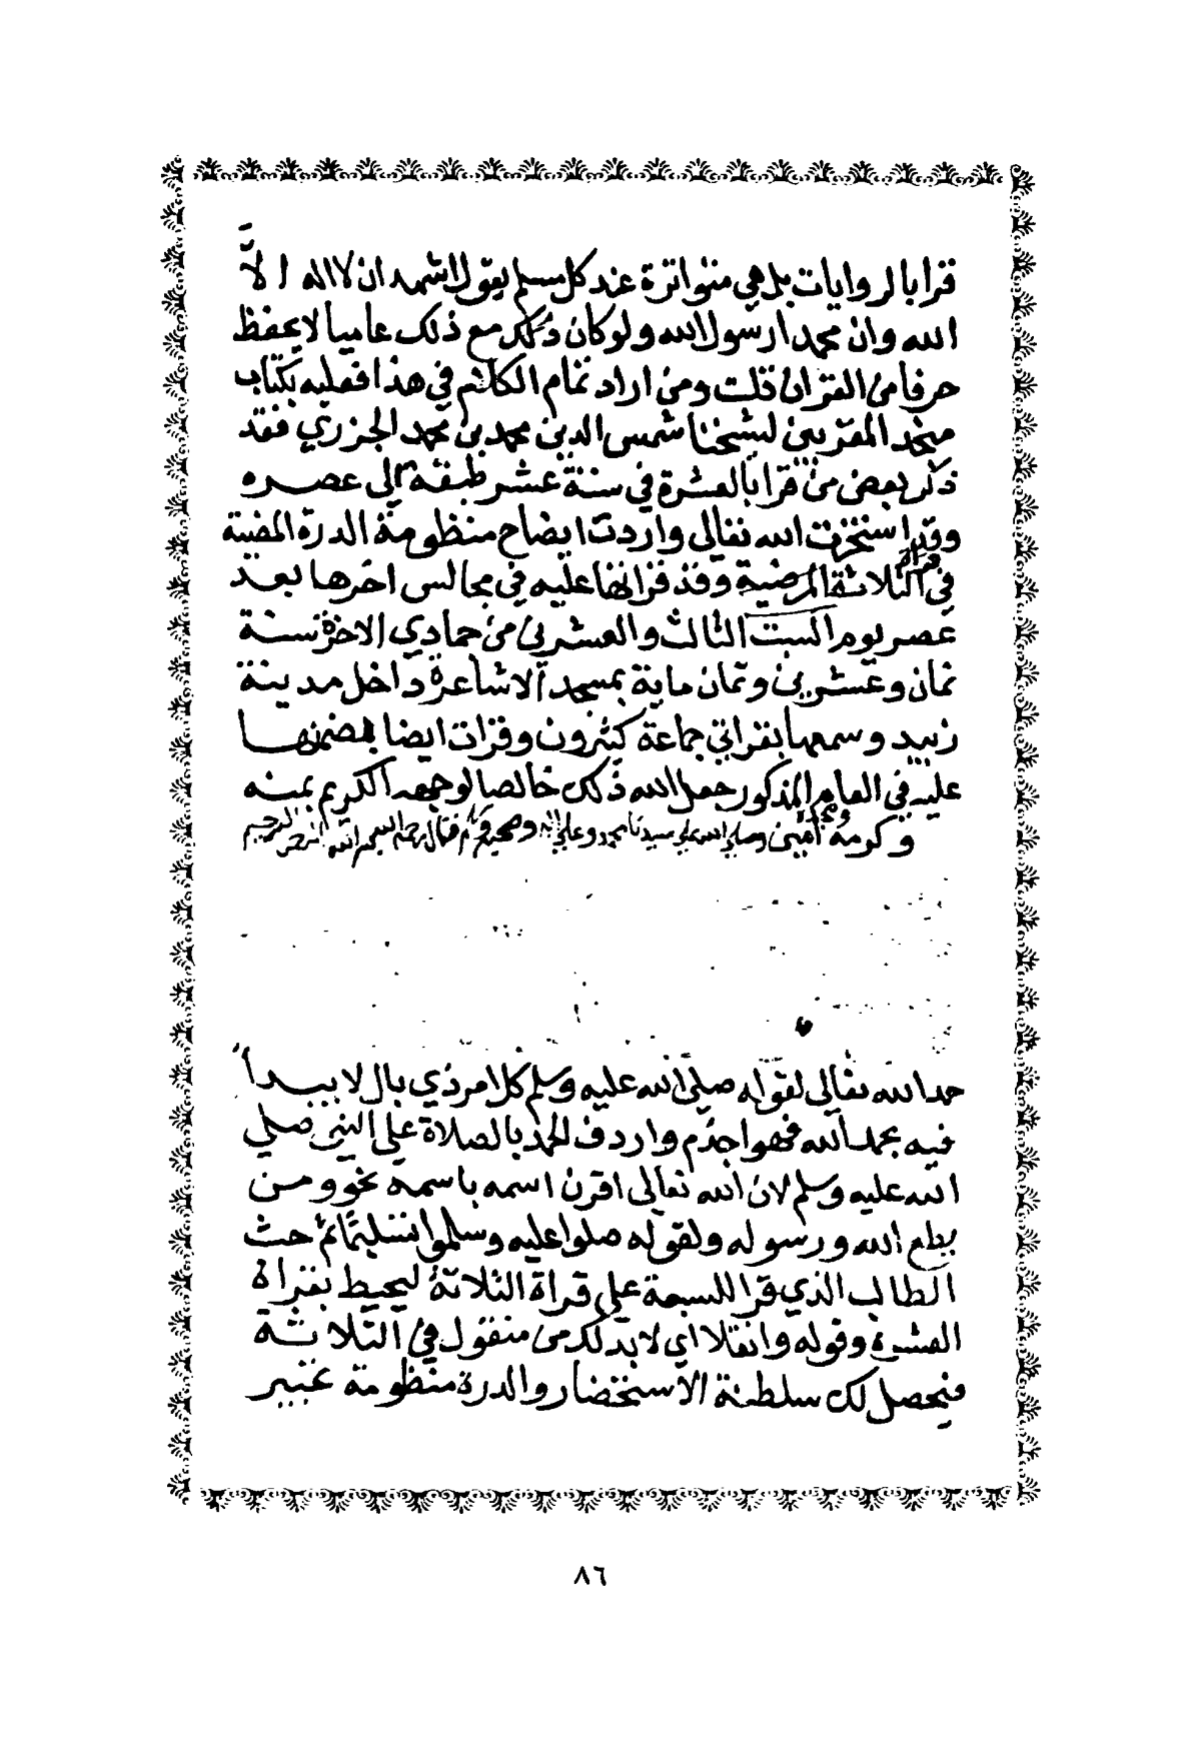 قرا بالروايات بل هي متواترة عند كل مسلم يقول اشهد ان لا اله الا
الله وان محمدا رسول الله ولو كان ذلك مع ذلك عاميا لا يحفظ
حرفا من القران قلت ومن اراد تمام الكلام في هذا فعليه بكتاب
منجد المقريين لشيخنا شمس الدين محمد بن محمد الجزري فقد
ذكر بعض من قرا بالعشرة في ستة عشر طبقة الى عصره
وقد استخرت الله تعالى واردت ايضاح منظومة الدرة المضية
في قراة الثلاثة المرضية وقد قراتها عليه في مجالس اخرها بعد
عصر يوم السبت الثالث والعشرين من جمادي الاخرة سنة
ثمان وعشرين وثمان ماية بمسجد الاشاعرة داخل مدينة
زبيد وسمعها بقراتي جماعة كثيرون وقرات ايضا بمضمنها
عليه في العام المذكور جعل الله ذلك خالصا لوجهه الكريم بمنه
وكرمه امين وصلى الله على سيدنا محمد وعلى اله وصحبه وسلم قال رحمه الله بسم الله الرحمن الرحيم
حمد الله تعالى لقوله صلى الله عليه وسلم كل امر ذي بال لا يبدأ
فيه بحمد الله فهو اجذم واردف الحمد بالصلاة على النبي صلى
الله عليه وسلم لان الله تعالى اقرن اسمه باسمه نحو ومن
يطع الله ورسوله ولقوله صلوا عليه وسلموا تسليما ثم حث
الطالب الذي قرا للسبعة على قراة الثلاثة ليحيط بقراة
العشرة وقوله وانقلا اي لا بد لك من منقول في الثلاثة
فيحصل لك سلطنة الاستحضار والدرة منظومة غير
٨٦